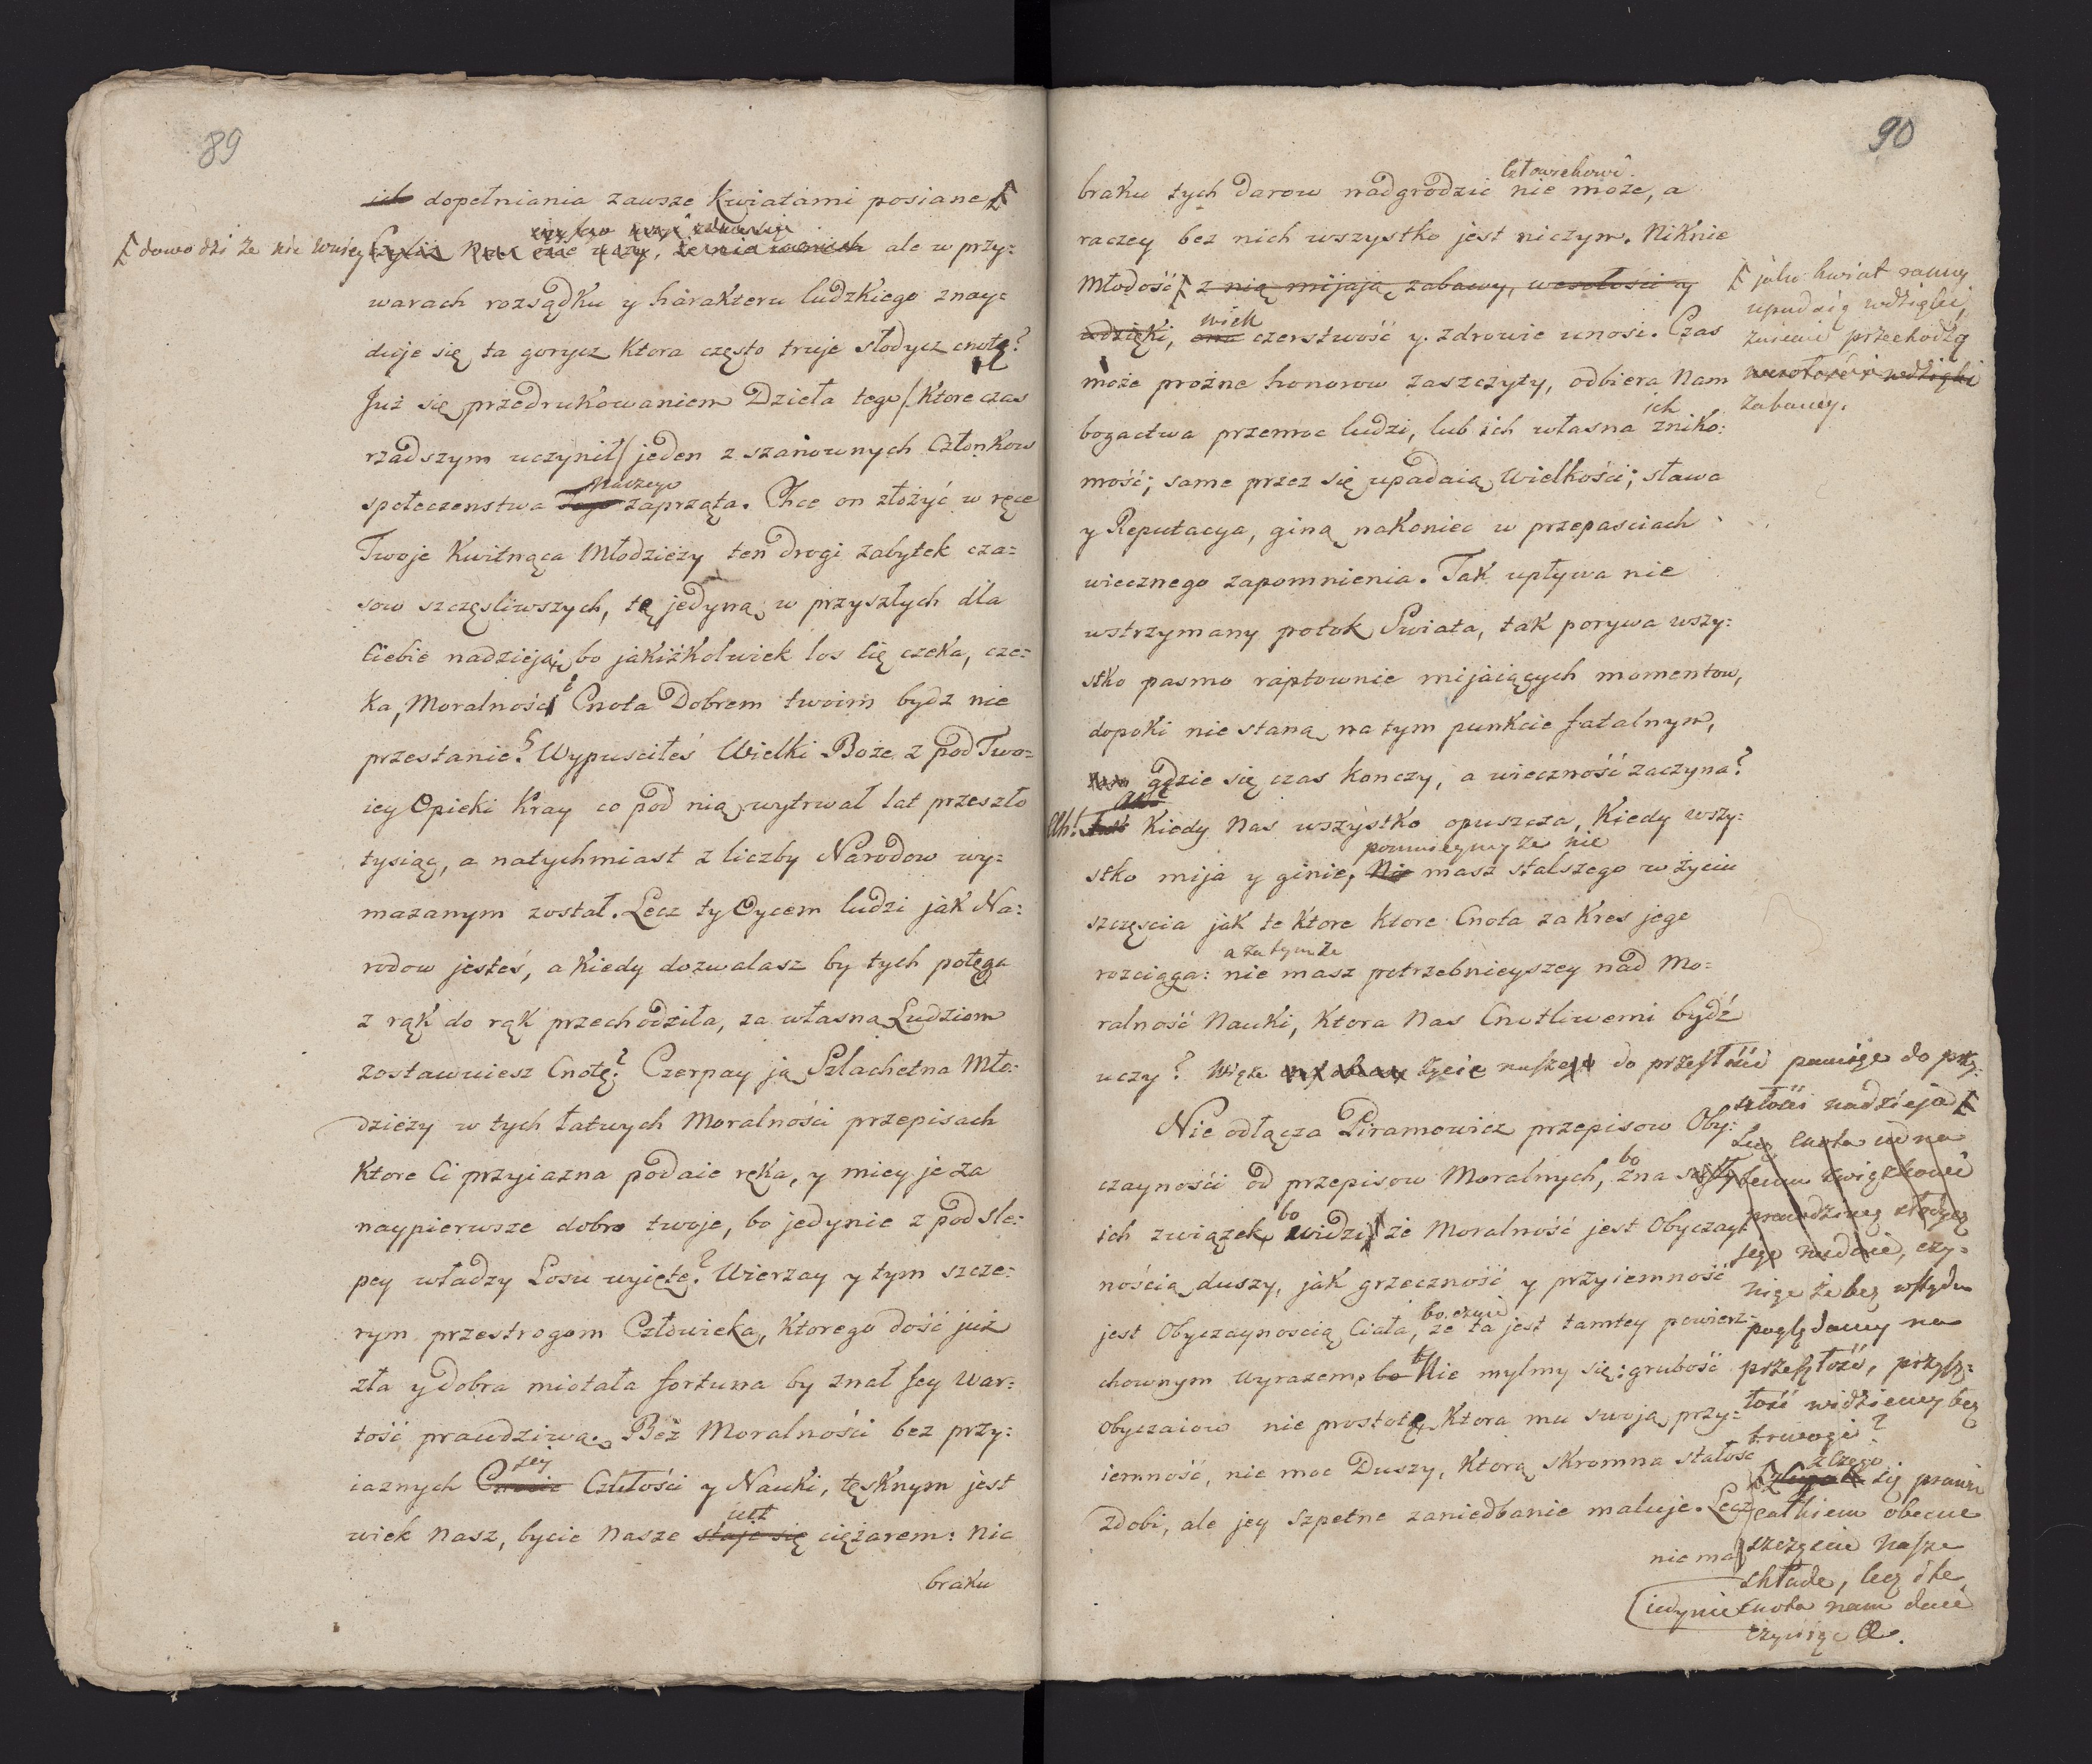 89
dopełniania zawsze Kwiatami posiane
dowodzi że nie w niey
ale w przy:
warach rozsądku y harakteru ludzkiego znay=
duje się ta gorycz Ktora często truje słodycz cnoty?
Już się przedrukowaniem Dzieła tego /: Ktore czas
rzadszym uczynił / jeden z szanownych Członkow
naszego
społeczenstwa Tego zaprząta. Chce on złożyć w ręce
Twoje Kwitnąca Młodzieży ten drogi zabytek cza=
sow szczęsliwszych, tę jedyną w przyszłych dla
Ciebie nadzieją; bo jakiżkolwiek los Cię czeka, cze=
ka, Moralność i Cnota Dobrem twoim bydz nie
przestanie. Wypusciłeś Wielki Boże z pod Two=
iey Opieki Kray co pod nią wytrwał lat przeszło
tysiąc, a natychmiast z liczby Narodow wy=
mazanym został. Lecz ty Oycem ludzi jak Na=
rodow jesteś, a Kiedy dozwalasz by tych potęga
z rąk do rąk przechodziła, za własną Ludziom
zostawuiesz Cnotę? Czerpay ją Szlachetna Mło=
dzieży w tych łatwych Moralności przepisach
Ktore Ci przyiazna podaie ręka, y miey je za
naypierwsze dobro twoje, bo jedynie z pod sle:
pey władzy Losu uyięte? Wierzay y tym szcze:
rym przestrogom Człowieka, Ktorego dość już
zła y dobra miotała fortuna by znał Jey War:
tość prawdziwą. Bez Moralności bez przy:
Jey
iaznych Czułości y Nauki, tęsknym jest
jest
wiek nasz, bycie nasze staje się ciężarem: nic
braku
90
Człowiekowi
braku tych darow nadgrodzić nie może, a
raczey bez nich wszystko jest niczym. Niknie
Młodość z nią mijają zabawy, wesołości y
wdzięki, wiek czerstwość y zdrowie unosi. Czas
jako kwiat ranny
upadaią wdzięki,
przechodzą
zabawy.
może prożne honorow zaszczyty, odbiera Nam
ich
bogactwa przemoc ludzi, lub ich własna zniko:
mość; same przez się upadaią Wielkości; sława
y Reputacya, giną nakoniec w przepasciach
wiecznego zapomnienia. Tak upływa nie
wstrzymany potok Swiata, tak porywa wszy:
stko pasmo raptownie mijaiących momentow,
dopoki nie staną na tym punkcie fatalnym,
gdzie się czas konczy, a wieczność zaczyna?
Ah! Kiedy Nas wszystko opuszcza, Kiedy wszy:
pomnieymy że nie
stko mija y ginie, Nie masz stalszego w życiu
szczęscia jak te Ktore ktore Cnota za Kres jego
a za tym że
rozciąga: nie masz potrzebnieyszey nad Mo=
ralność Nauki, Ktora Nas Cnotliwemi bydź
uczy? Wiąże życie nasze do przeszłości pamięć do przy:
szłości nadzieja
Nie odłącza Piramowicz przepisow Oby:
czayności od przepisow Moralnych, bo zna
ich związek, bo widzi że Moralność jest Obyczay=
nością duszy, jak grzeczność y przyiemność
bo czuie
jest Obyczaynoscią Ciała, że ta jest tamtey powierz=
chownym wyrazem, bo Nie mylmy się: grubość
Obyczaiow nie prostotę Ktora mu swoją przy=
iemność, nie moc Duszy, Ktorą skromna stałosc
zdobi, ale jey szpetne zaniedbanie maluje. Lecz
nie ma
Lecz cnota
związkowi
prawdziwą słodycz
Jego nadaie, czy=
niąc że bez wstydu
poglądamy na
przeszłość, przysz=
łość widziemy bez
trwogi?
z czego
się prawie
całkiem obecne
szczęście nasze
składa, lecz i te
jedynie cnota nam daie
czyniąc &.